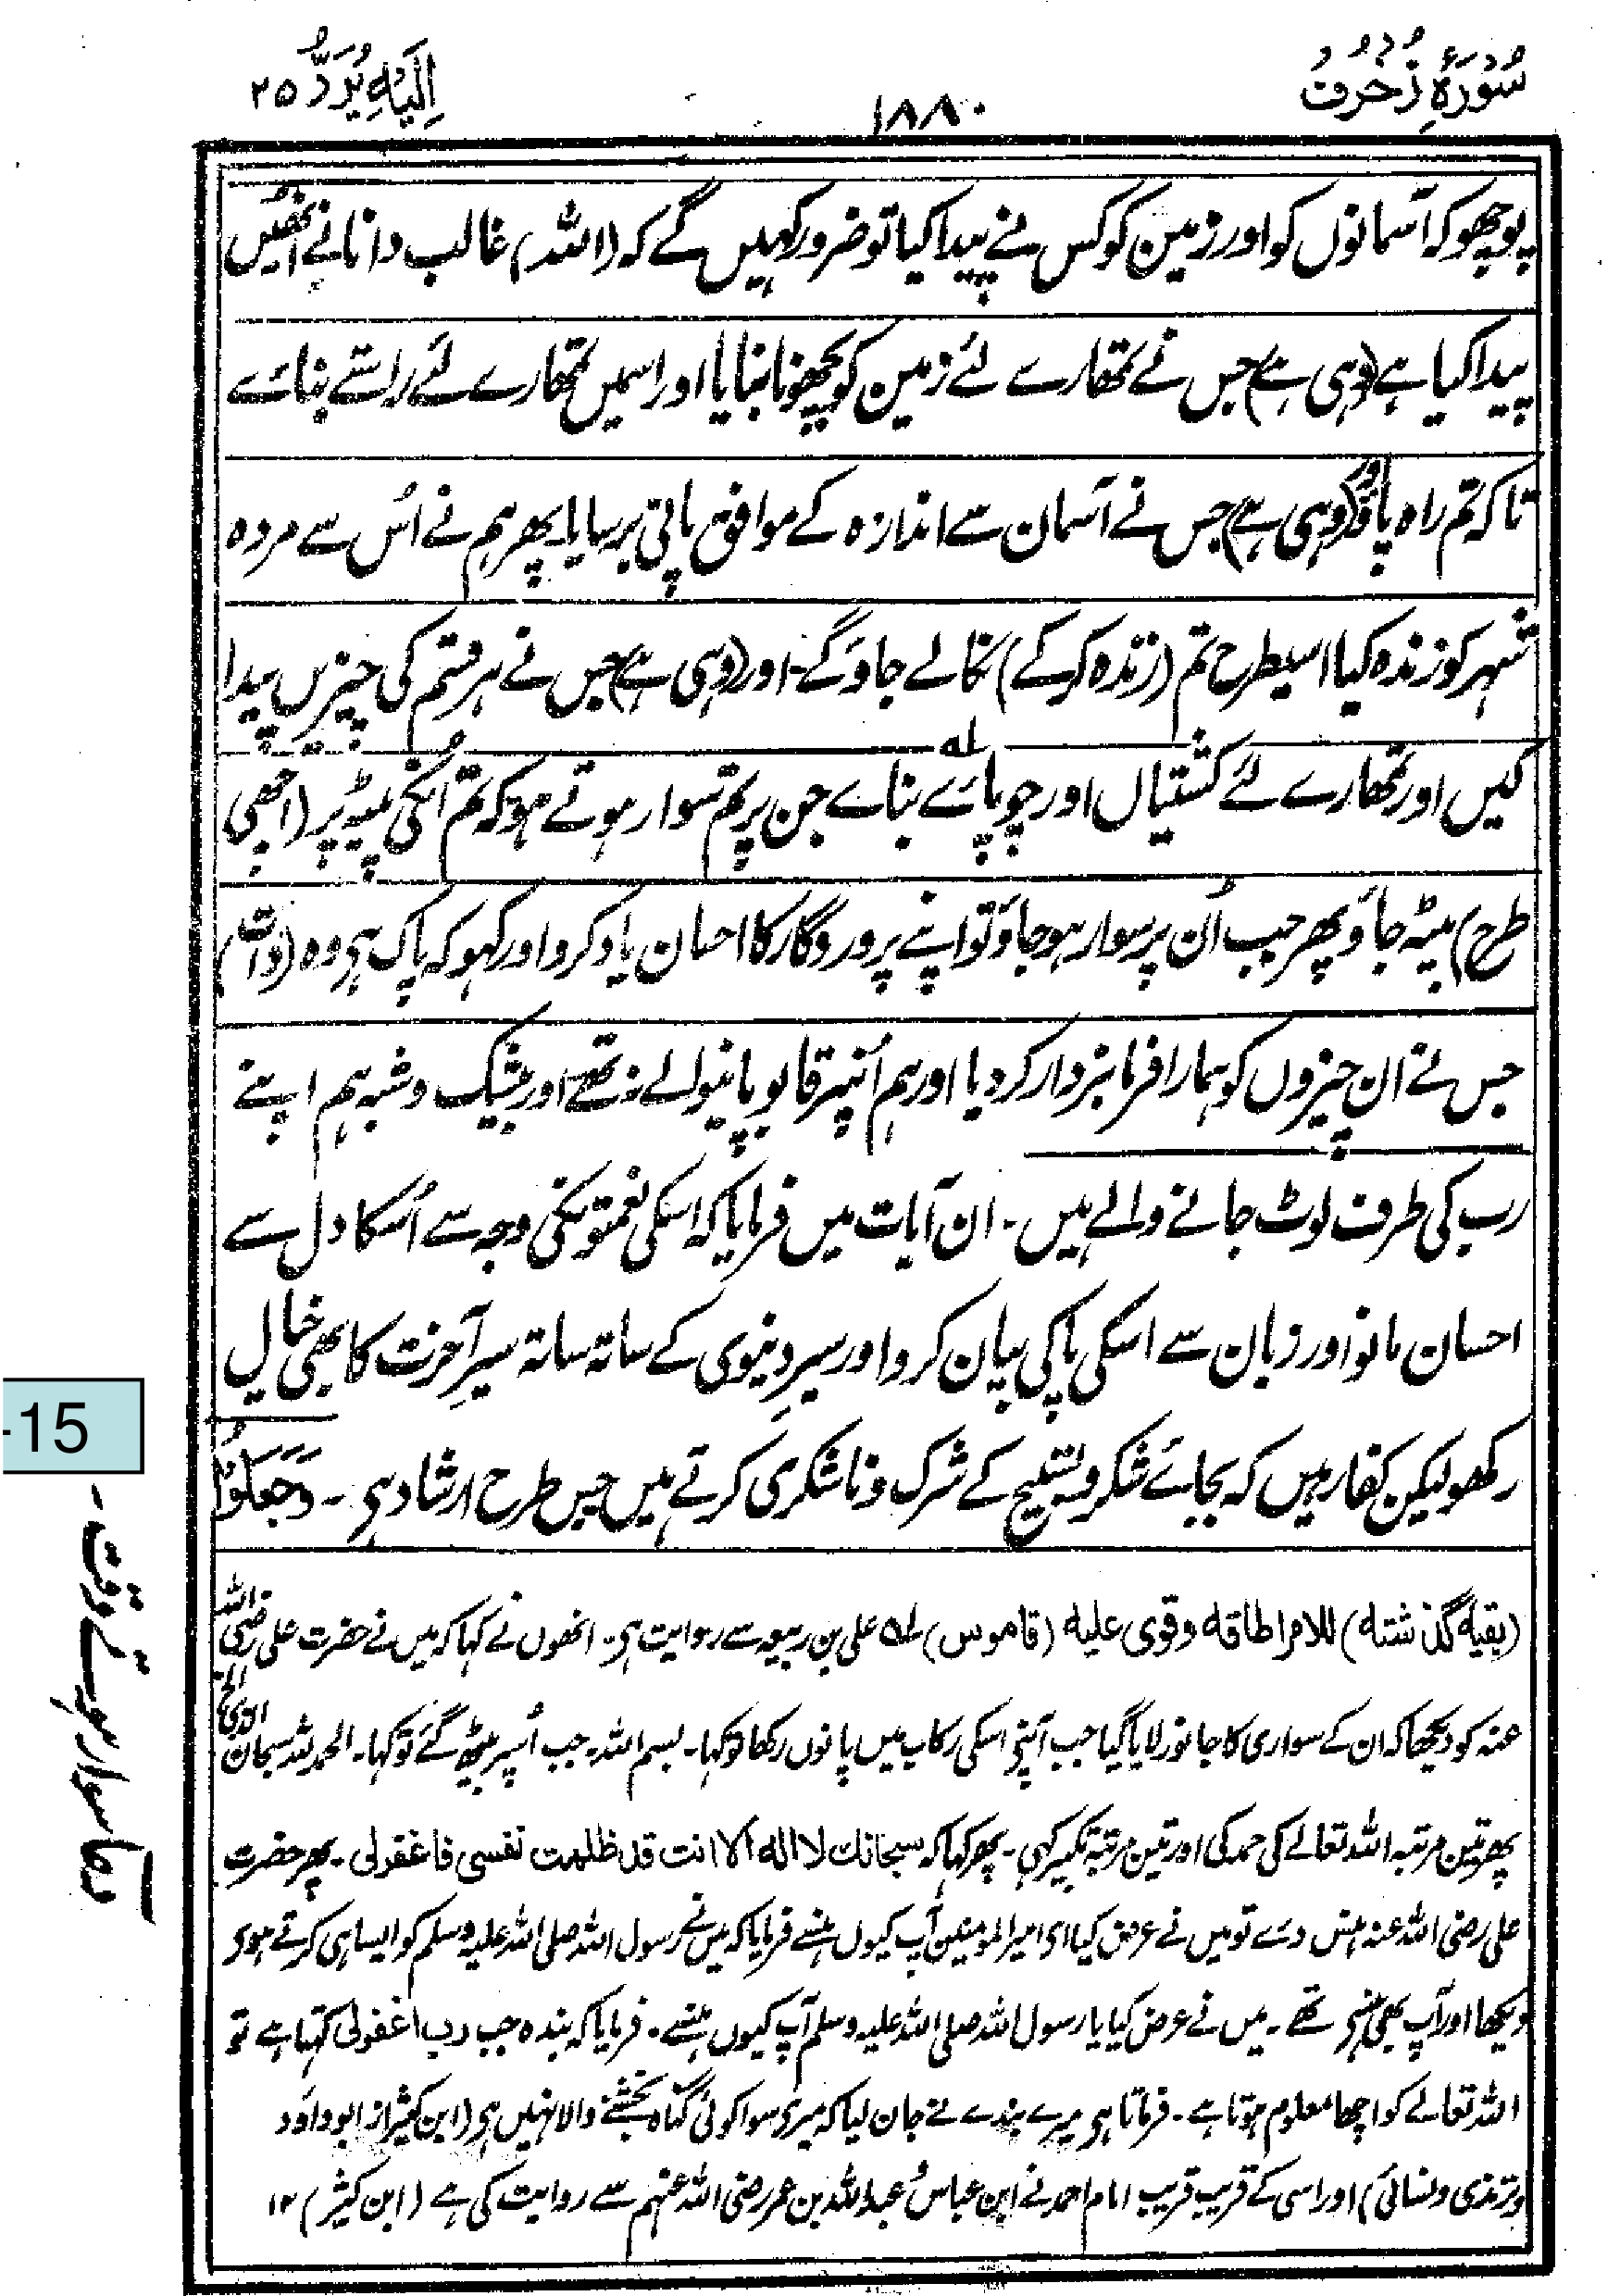 سُوْرَۂِ زُخْرُفُ
۱۸۸۰
اِلَیْہِ یُرَدُّ ۲۵
پوچھو کہ آسمانوں کو اور زمین کو کس نے پیدا کیا تو ضرور کہیں گے کہ (اللہ) غالب دانا نے انھیں
پیدا کیا ہے (وہی ہے) جس نے تمھارے لئے زمین کو بچھونا بنایا اور اسمیں تمھارے لئے راستے بنائے
تاکہ تم راہ پاؤ اور (وہی ہے) جس نے آسمان سے اندازہ کے موافق پانی برسایا۔ پھر ہم نے اُس سے مردہ
شہر کو زندہ کیا اسیطرح تم (زندہ کرکے) نکالے جاؤ گے۔ اور (وہی ہے) جس نے ہر قسم کی چیزیں پیدا
کیں اور تمھارے لئے کشتیاں اور چوپائے بنائے جن پر تم سوار ہوتے ہو کہ تم اُنکی پیٹھ پر (اچھی
طرح) بیٹھ جاؤ پھر جب اُن پر سوار ہوجاؤ تو اپنے پروردگار کا احسان یاد کرو اور کہو کہ پاک ہی وہ (ذات)
جس نے ان چیزوں کو ہمارا فرمانبردار کردیا اور ہم اُنپر قابو پانیوالے نہ تھے اور بیشک و شبہ ہم اپنے
رب کی طرف لوٹ جانے والے ہیں۔ ان آیات میں فرمایا کہ اسکی نعمتونکی وجہ سے اُسکا دل سے
احسان مانو اور زبان سے اسکی پاکی بیان کرو اور سیرِ دنیوی کے ساتھ ساتھ سیرِ آخرت کا بھی خیال
رکھو لیکن کفار ہیں کہ بجائے شکر و تسبیح کے شرک و ناشکری کرتے ہیں جس طرح ارشاد ہی۔ وَجَعَلُوْا
(بقیہ گذشتہ) للامر اطاقہ وقوی علیہ (قاموس) لہ علی بن ربیعہ سے روایت ہی۔ انھوں نے کہا کہ میں نے حضرت علی رضی اللہ
عنہ کو دیکھا کہ ان کے سواری کا جانور لایا گیا جب آپنے اسکی رکاب میں پانوں رکھا تو کہا۔ بسم اللہ۔ جب اُسپر بیٹھ گئے تو کہا۔ الحمد للہ سبحان الذی الخ
پھر تین مرتبہ اللہ تعالےٰ کی حمد کی اور تین مرتبہ تکبیر کہی۔ پھر کہا کہ سبحانک لا الہ الا انت قد ظلمت نفسی فاغفرلی۔ پھر حضرت
علی رضی اللہ عنہ ہنس دئے تو میں نے عرض کیا ای امیر المومنین آپ کیوں ہنسے فرمایا کہ میں نے رسول اللہ صلی اللہ علیہ وسلم کو ایسا ہی کرتے ہوئے
دیکھا اور آپ بھی ہنسے تھے۔ میں نے عرض کیا یا رسول اللہ صلی اللہ علیہ وسلم آپ کیوں ہنسے۔ فرمایا کہ بندہ جب رب اغفرلی کہتا ہے تو
اللہ تعالےٰ کو اچھا معلوم ہوتا ہے۔ فرماتا ہی میرے بندے نے جان لیا کہ میرے سوا کوئی گناہ بخشنے والا نہیں ہی (ابن کثیر از ابو داؤد
و ترمذی و نسائی) اور اسی کے قریب قریب امام احمد نے ابن عباس و عبداللہ بن عمر رضی اللہ عنہم سے روایت کی ہے (ابن کثیر) ۱۲
-15
دعا سوار ہوتے وقت -